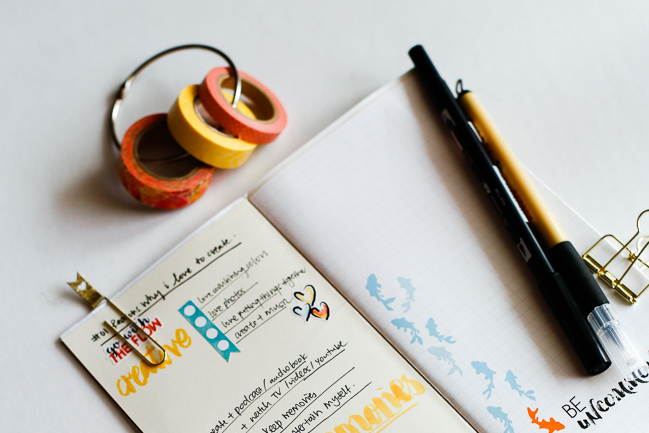 Reasons why i love to create.
go with
THE FLOW
creative
love combining colors
love photos
love putting things together
create + music
+ podcast / audiobook
+ watch TV / videos / youtube
keep memories
entertain myself.
memories
BE
UNCOMMON